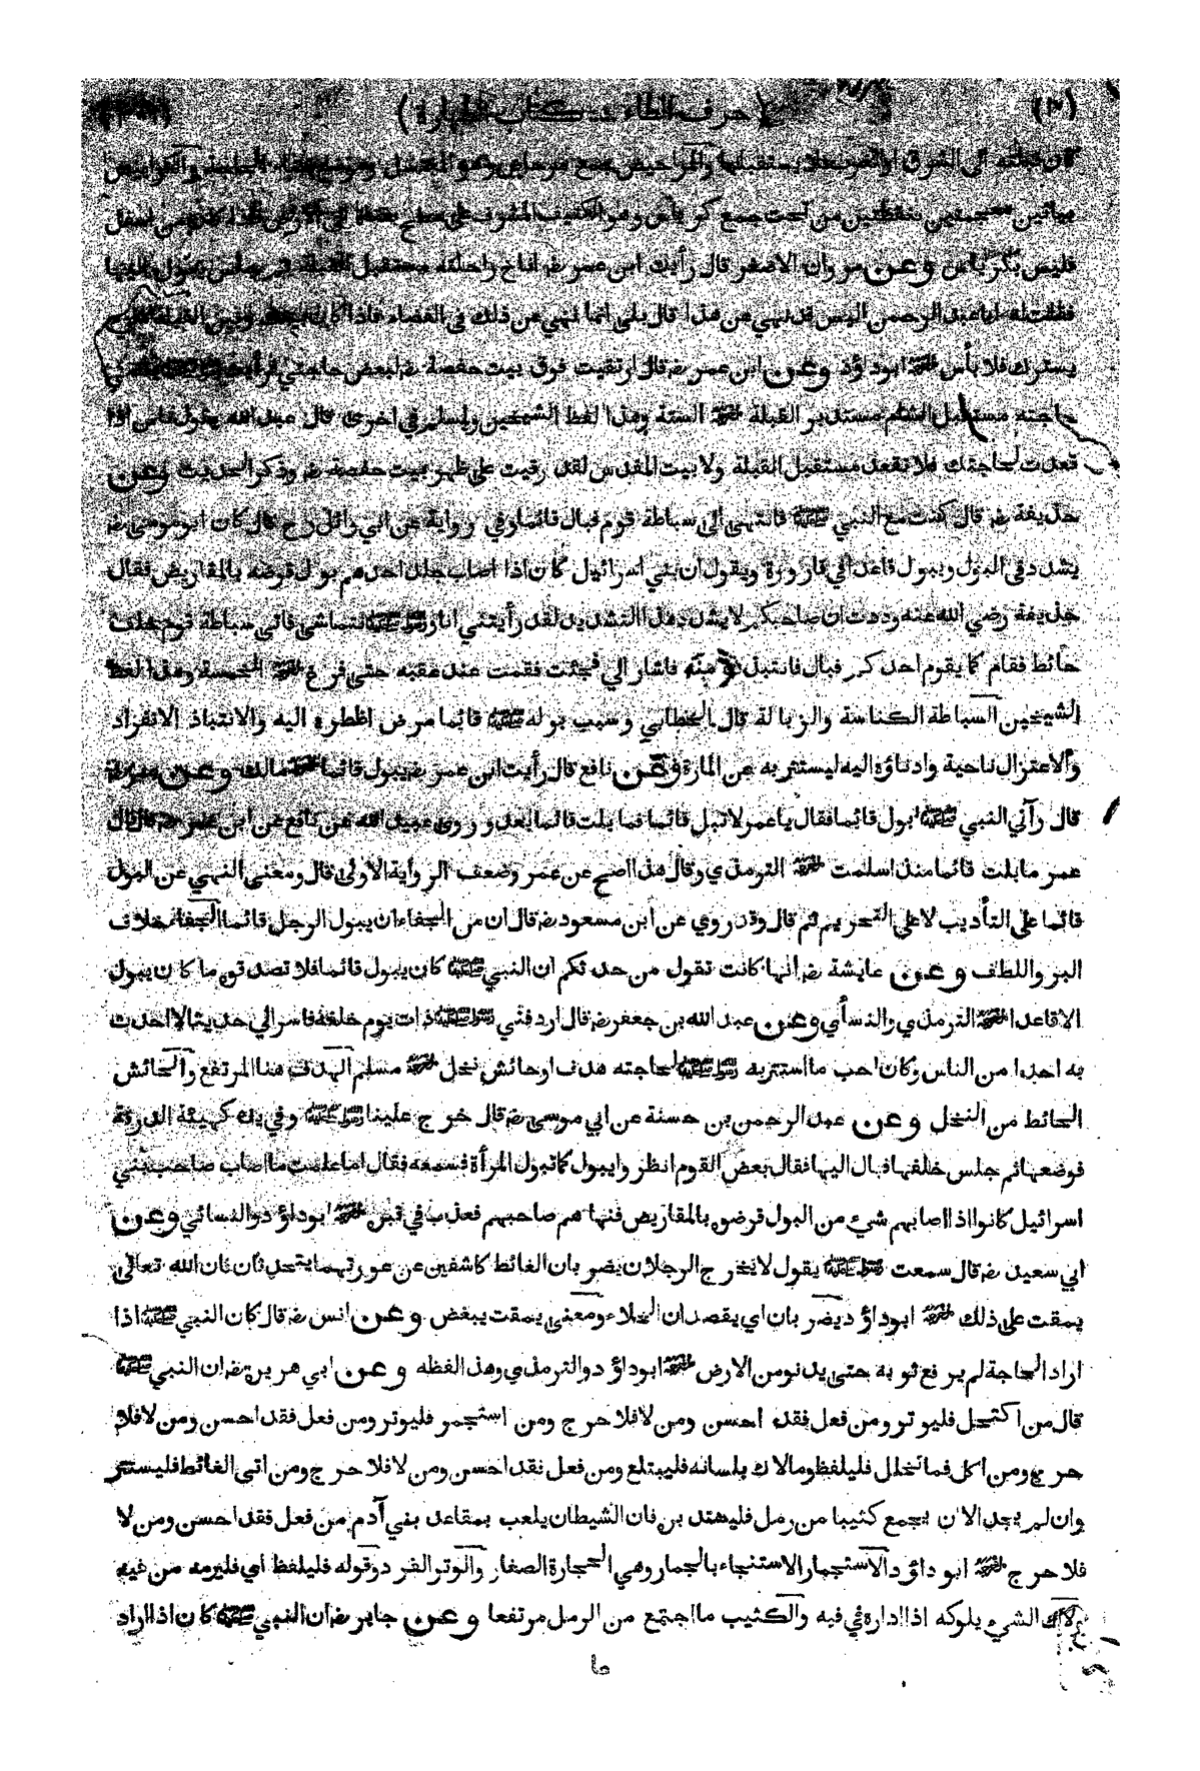 (٣) (حرف الطاء – كتاب الطهارة)
كان قبلته الى الشرق او الغرب فلا يستقبلها والمراحيض جمع مرحاض وهو المغتسل وموضع قضاء الحاجة والكراييس
بيائين معجمتين بنقطتين من تحت جمع كرياس وهو الكنيف المشرف على سطح بقناة الى الارض فاذا كان من اسفل
فليس بكرياس وعن مروان الاصفر قال رأيت ابن عمر رض اناخ راحلته مستقبل القبلة ثم جلس يبول اليها
فقلت له ابا عبد الرحمن اليس قد نهي عن هذا قال بلى انما نهي عن ذلك في الفضاء فاذا كان بينك وبين القبلة شيء
يسترك فلا بأس اخرجه ابوداؤد وعن ابن عمر رض قال ارتقيت فوق بيت حفصة رض لبعض حاجتي فرأيت
حاجته مستقبل الشام مستدبر القبلة اخرجه الستة وهذا لفظ الشيخين ولمسلم في اخرى قال عبد الله يقول ناس اذا
قعدت لحاجتك فلا تقعد مستقبل القبلة ولا بيت المقدس لقد رقيت على ظهر بيت حفصة رض وذكر الحديث وعن
حذيفة رض قال كنت مع النبي ﷺ فانتهى الى سباطة قوم فبال قائما وفي رواية عن ابي وائل رح قال كان ابو موسى رض
يشدد في البول ويبول قاعدا في قارورة ويقول ان بني اسرائيل كان اذا اصاب جلد احدهم بول قرضه بالمقاريض فقال
حذيفة رضي الله عنه وددت ان صاحبكم لا يشدد هذا التشديد لقد رأيتني انا ورسول الله ﷺ نتماشى فاتى سباطة قوم خلف
حائط فقام كما يقوم احدكم فبال فانتبذت منه فاشار الي فجئت فقمت عند عقبه حتى فرغ اخرجه الخمسة وهذا لفظ
الشيخين السباطة الكناسة والزبالة قال الخطابي وسبب بوله ﷺ قائما مرض اظطره اليه والانتباذ الانفراد
والاعتزال ناحية وادناؤه اليه ليستتر به عن المارة وعن نافع قال رأيت ابن عمر رض يبول قائما اخرجه مالك وعن عمر رض
قال رآني النبي ﷺ ابول قائما فقال يا عمر لا تبل قائما فما بلت قائما بعد وروى عبيد الله عن نافع عن ابن عمر رض قال قال
عمر ما بلت قائما منذ اسلمت اخرجه الترمذي وقال هذا اصح عن عمر وضعف الرواية الاولى قال ومعنى النهي عن البول
قائما على التأديب لا على التحريم ثم قال وقد روي عن ابن مسعود رض قال ان من الجفاء ان يبول الرجل قائما الجفاء خلاف
البر واللطف وعن عايشة رض انها كانت تقول من حدثكم ان النبي ﷺ كان يبول قائما فلا تصدقوه ما كان يبول
الا قاعدا اخرجه الترمذي والنسأي وعن عبد الله بن جعفر رض قال اردفني رسول الله ﷺ ذات يوم خلفه فاسر الي حديثا لا احدث
به احدا من الناس وكان احب ما استتر به رسول الله ﷺ لحاجته هدف او حائش نخل اخرجه مسلم الهدف هنا المرتفع والحائش
الحائط من النخل وعن عبد الرحمن بن حسنة عن ابي موسى رض قال خرج علينا رسول الله ﷺ وفي يده كهيئة الدرقة
فوضعها ثم جلس خلفها فبال اليها فقال بعض القوم انظروا يبول كما تبول المرأة فسمعه فقال اما علمت ما اصاب صاحب بني
اسرائيل كانوا اذا اصابهم شيء من البول قرضوه بالمقاريض فنهاهم صاحبهم فعذب في قبره اخرجه ابوداؤد والنسائي وعن
ابي سعيد رض قال سمعت رسول الله ﷺ يقول لا يخرج الرجلان يضربان الغائط كاشفين عن عورتهما يتحدثان فان الله تعالى
يمقت على ذلك اخرجه ابوداؤد يضربان اي يقصدان الخلاء ومعنى يمقت يبغض وعن انس رض قال كان النبي ﷺ اذا
اراد الحاجة لم يرفع ثوبه حتى يدنو من الارض اخرجه ابوداؤد والترمذي وهذا لفظه وعن ابي هريرة رض ان النبي ﷺ
قال من اكتحل فليوتر ومن فعل فقد احسن ومن لا فلا حرج ومن استجمر فليوتر ومن فعل فقد احسن ومن لا فلا
حرج ومن اكل فما تخلل فليلفظ وما لاك بلسانه فليبتلع ومن فعل فقد احسن ومن لا فلا حرج ومن اتى الغائط فليستتر
وان لم يجد الا ان يجمع كثيبا من رمل فليستدبره فان الشيطان يلعب بمقاعد بني آدم من فعل فقد احسن ومن لا
فلا حرج اخرجه ابوداؤد والاستجمار الاستنجاء بالجمار وهي الحجارة الصغار والوتر الفرد وقوله فليلفظ اي فليرمه من فيه
ولاك الشيء يلوكه اذا اداره في فيه والكثيب ما اجتمع من الرمل مرتفعا وعن جابر رض ان النبي ﷺ كان اذا اراد